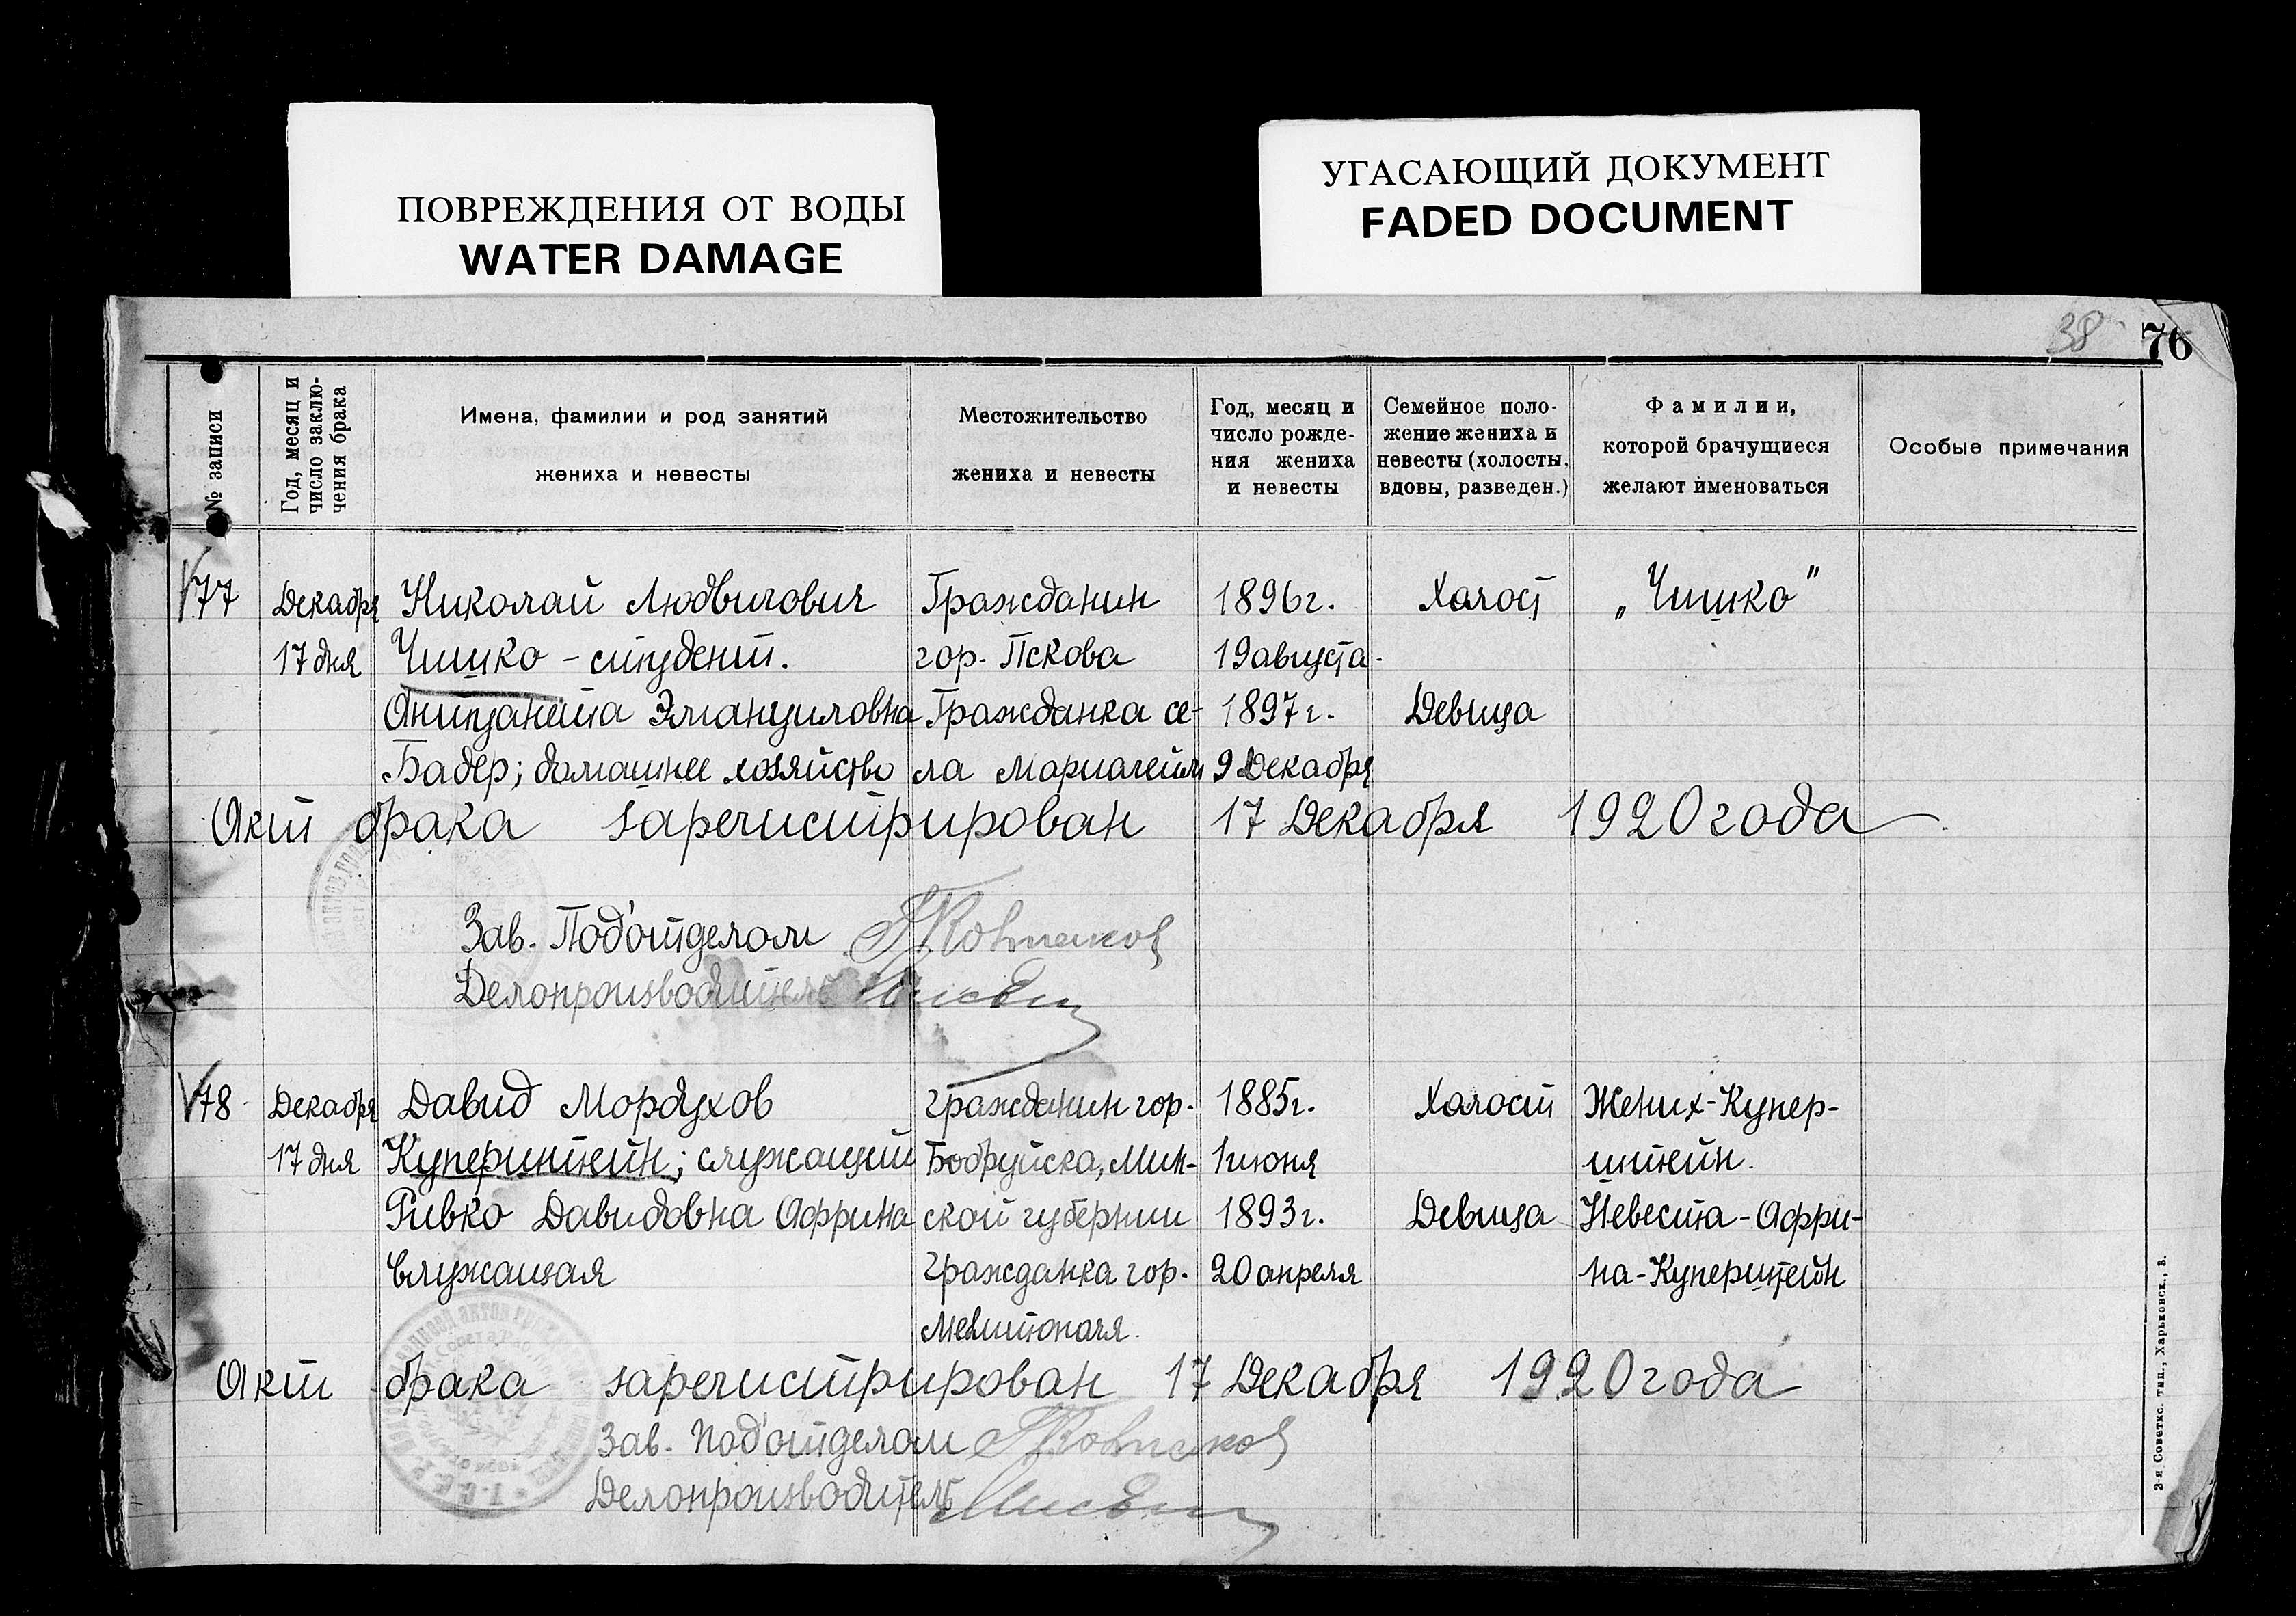 ПОВРЕЖДЕНИЯ ОТ ВОДЫ
WATER DAMAGE
УГАСАЮЩИЙ ДОКУМЕНТ
FADED DOCUMENT
38
76
№ записи
Год, месяц и
число заклю-
чения брака
Имена, фамилии и род занятий
жениха и невесты
Местожительство
жениха и невесты
Год, месяц и
число рожде-
ния жениха
и невесты
Семейное поло-
жение жениха и
невесты (холосты,
вдовы, разведен.)
Фамилии,
которой брачущиеся
желают именоваться
Особые примечания
77
Декабря
17 дня
Николай Людвигович
Чишко - студент.
Антуанета Эмануиловна
Бадер; домашнее хозяйство
Гражданин
гор. Пскова
Гражданка се-
ла Мариагейм
1896г.
19 августа.
1897г.
9 Декабря
Холост
Девица
„Чишко"
Акт брака зарегистрирован 17 Декабря 1920 года
Зав. Под'отделом
Делопроизводитель
78
Декабря
17 дня
Давид Мордухов
Куперштейн; служащий
Ривко Давидовна Африна
Служащая
Гражданин гор.
Бобруйска, Мин-
ской губернии
Гражданка гор.
Мелитополя.
1885г.
1 июня
1893г.
20 апреля
Холост
Девица
Жених-Купер-
штейн.
Невеста-Афри-
на-Куперштейн
Акт брака зарегистрирован 17 Декабря 1920 года
Зав. Под'отделом
Делопроизводитель
2-я Советск. тип., Харьковск., 8.